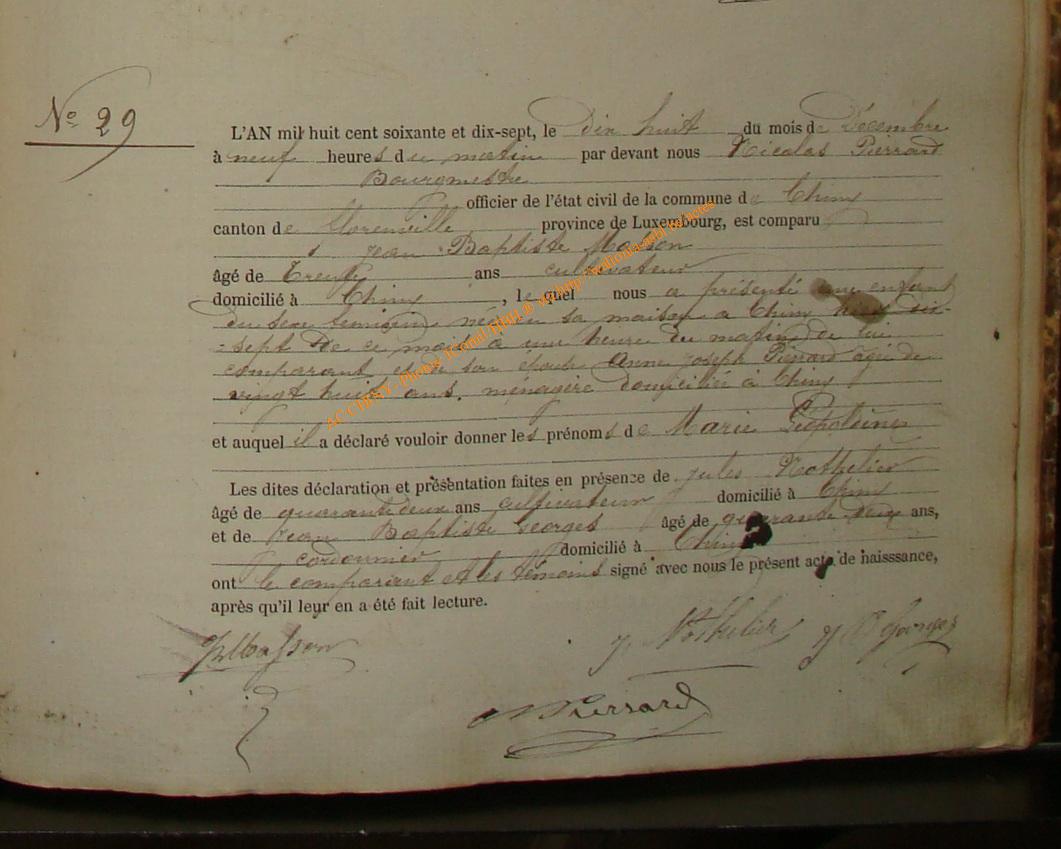 No 29
L'AN mil huit cent soixante et dix-sept, le dix huit du mois de Décembre
à neuf heures du matin par devant nous Nicolas Pierrard
Bourgmestre
officier de l'état civil de la commune de Chiny
canton de Florenville province de Luxembourg, est comparu
Jean Baptiste Masson
âgé de Trente ans cultivateur
domicilié à Chiny, lequel nous a présenté une enfant
du sexe féminin née en sa maison à Chiny hier dix-
-sept de ce mois à une heure du matin de lui
comparant et de son épouse Anne Joseph Pierrard âgée de
vingt huit ans, ménagère domiciliée à Chiny
et auquel il a déclaré vouloir donner les prénoms de Marie Léopoldine
Les dites déclaration et présentation faites en présence de Jules Nothelier
âgé de quarante deux ans cultivateur domicilié à Chiny
et de Jean Baptiste Georges âgé de quarante ans,
cordonnier domicilié à Chiny
ont le comparant et les témoins signé avec nous le présent acte de naisssance,
après qu'il leur en a été fait lecture.
JBMasson J. Nothelier J B Georges
N Pierrard
AC CHINY - Photos